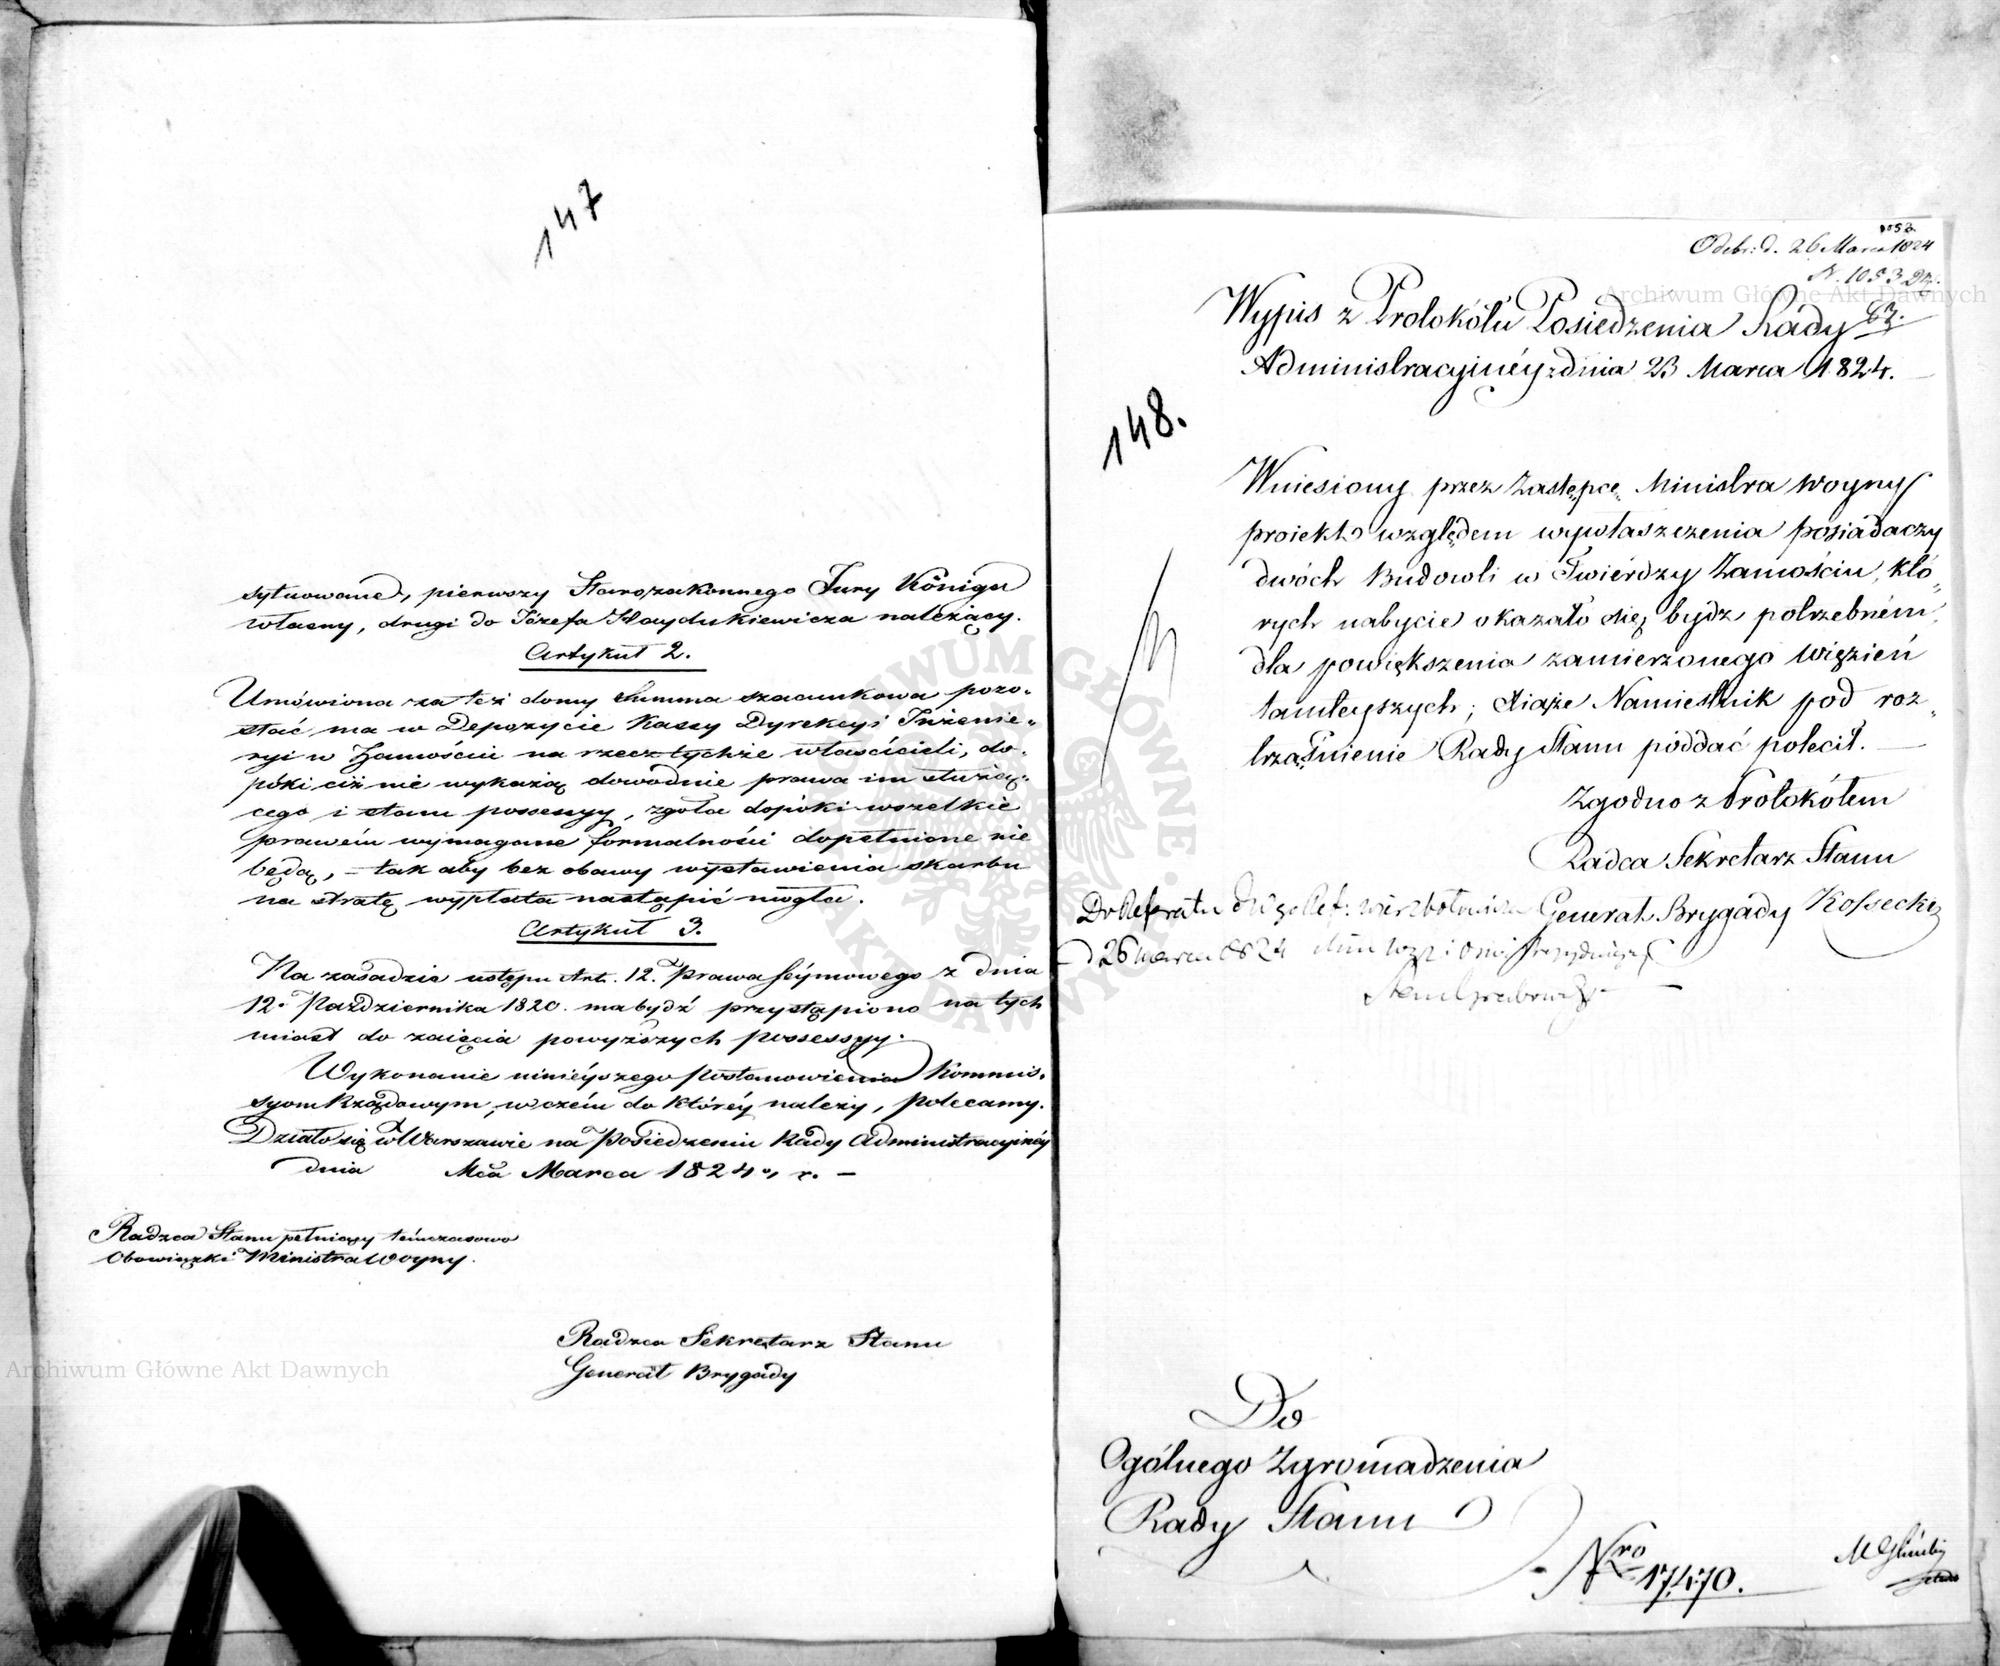 147
sytuowane, pierwszy Starozakonnego Jury Königa
własny, drugi do Józefa Haydukiewicza należący.
Artykuł 2.
Umówiona za też domy Summa szacunkowa pozo-
stać ma w Depozycie Kassy Dyrekcyi Inżenie-
ryi w Zamościu na rzecz tychże właścicieli, do-
póki ciż nie wykażą dowodnie prawa im służą-
cego i stanu possessyi, zgoła dopóki wszelkie
prawem wymagane formalności dopełnione nie
będą, – tak aby bez obawy wystawienia skarbu
na stratę wypłata nastąpić mogła.
Artykuł 3.
Na zasadzie ustępu Art. 12. Prawa Séymowego z dnia
12. Października 1820. ma bydź przystąpiono na tych
miast do zaięcia powyższych possessyy.
Wykonanie ninieyszego postanowienia Kommis-
syom Rządowym, w czém do któréy należy, polecamy.
Działo się w Warszawie na Posiedzeniu Rady Administracyinéy
dnia Mca Marca 1824. r. –
Radzca Stanu pełniący témczasowo
Obowiązki Ministra Woyny.
Radzca Sekretarz Stanu
Generał Brygady
Archiwum Główne Akt Dawnych
1053
Odebr: d. 26 Marca 1824
N. 1053 Dz.
Archiwum Główne Akt Dawnych
Wypis z Protokółu Posiedzenia Rády
Administracyinéy z dnia 23 Marca 1824.
148.
Wniesiony przez Zastępcę Ministra Woyny
proiekt względem wywłaszczenia posiadaczy
dwóch Budowli w Twiérdzy Zamościu, któ-
rych nabycie okazało się bydź potrzebném
dla powiększenia zamierzonego więzień
tamteyszych; Xiąże Namiestnik pod roz-
trząśnienie Rady Stanu poddać polecił.
Zgodno z Protokółem
Radca Sekretarz Stanu
Generał Brygády Kossecki
Do Referatu
d 26 Marca 1824
Do
Ogólnego Zgromadzenia
Rady Stanu
Nro 17,470.
ARCHIWUM GŁÓWNE AKT DAWNYCH